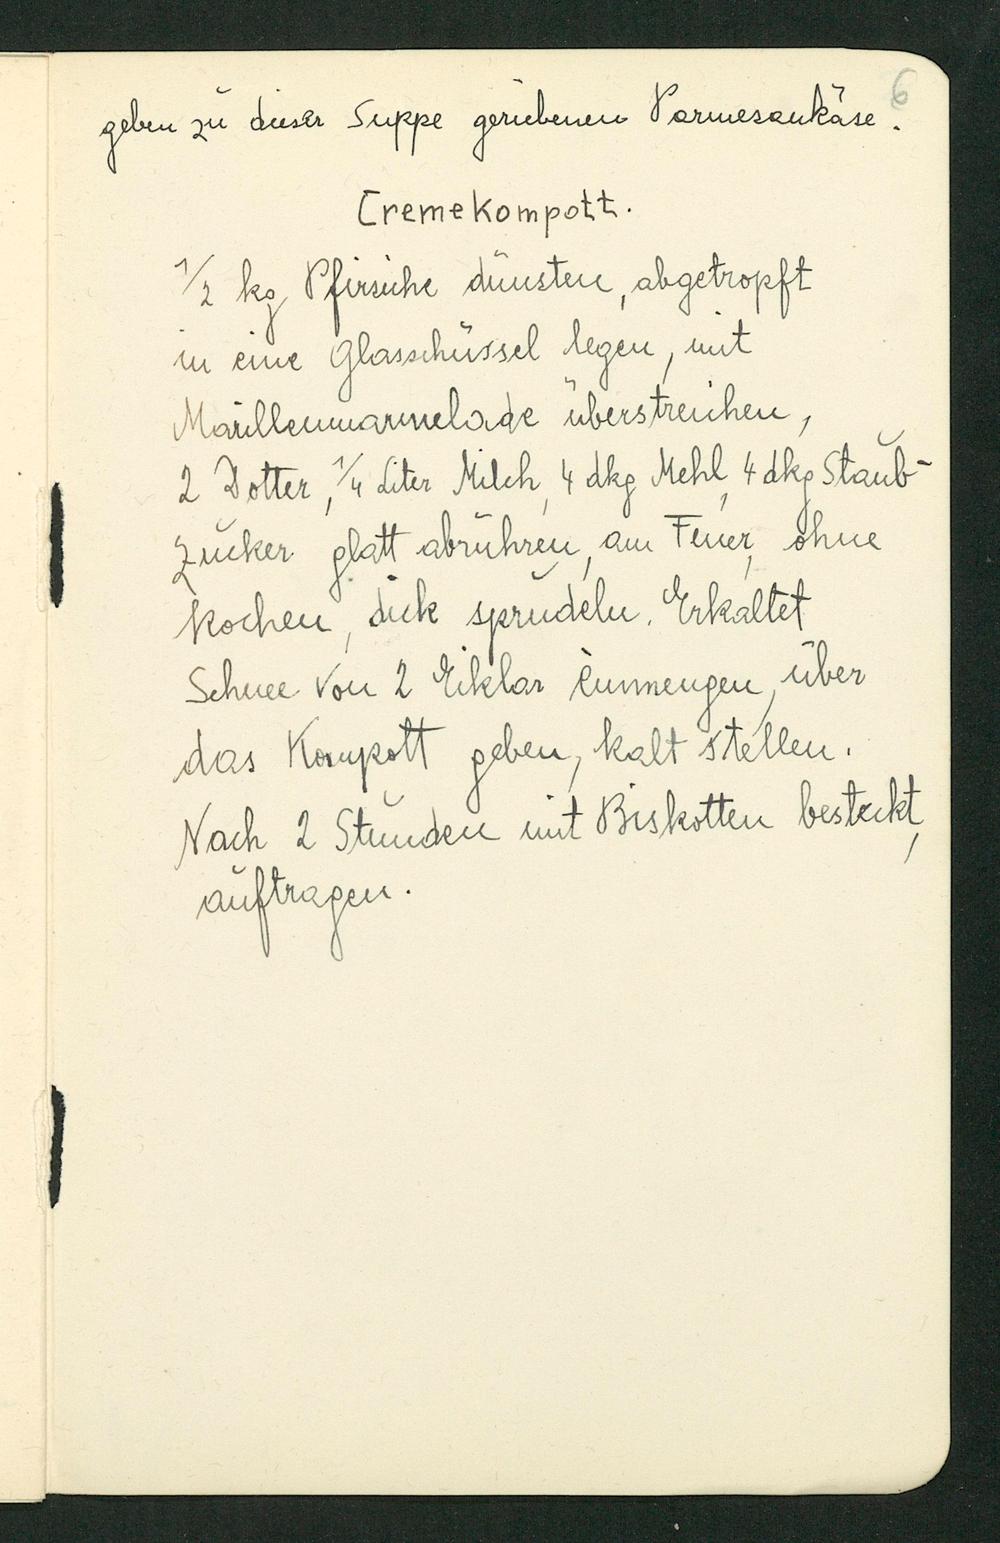 6
geben zu dieser Suppe geriebenen Parmesankäse.
Cremekompott.
1/2 kg Pfirsiche dünsten, abgetropft
in eine Glasschüssel legen, mit
Marillenmarmelade überstreichen,
2 Dotter, 1/4 Liter Milch, 4 dkg Mehl, 4 dkg Staub-
zucker glatt abrühren, am Feuer, ohne
kochen, dick sprudeln. Erkaltet
Schnee von 2 Eiklar einmengen, über
das Kompott geben, kalt stellen.
Nach 2 Stunden mit Biskotten besteckt,
auftragen.